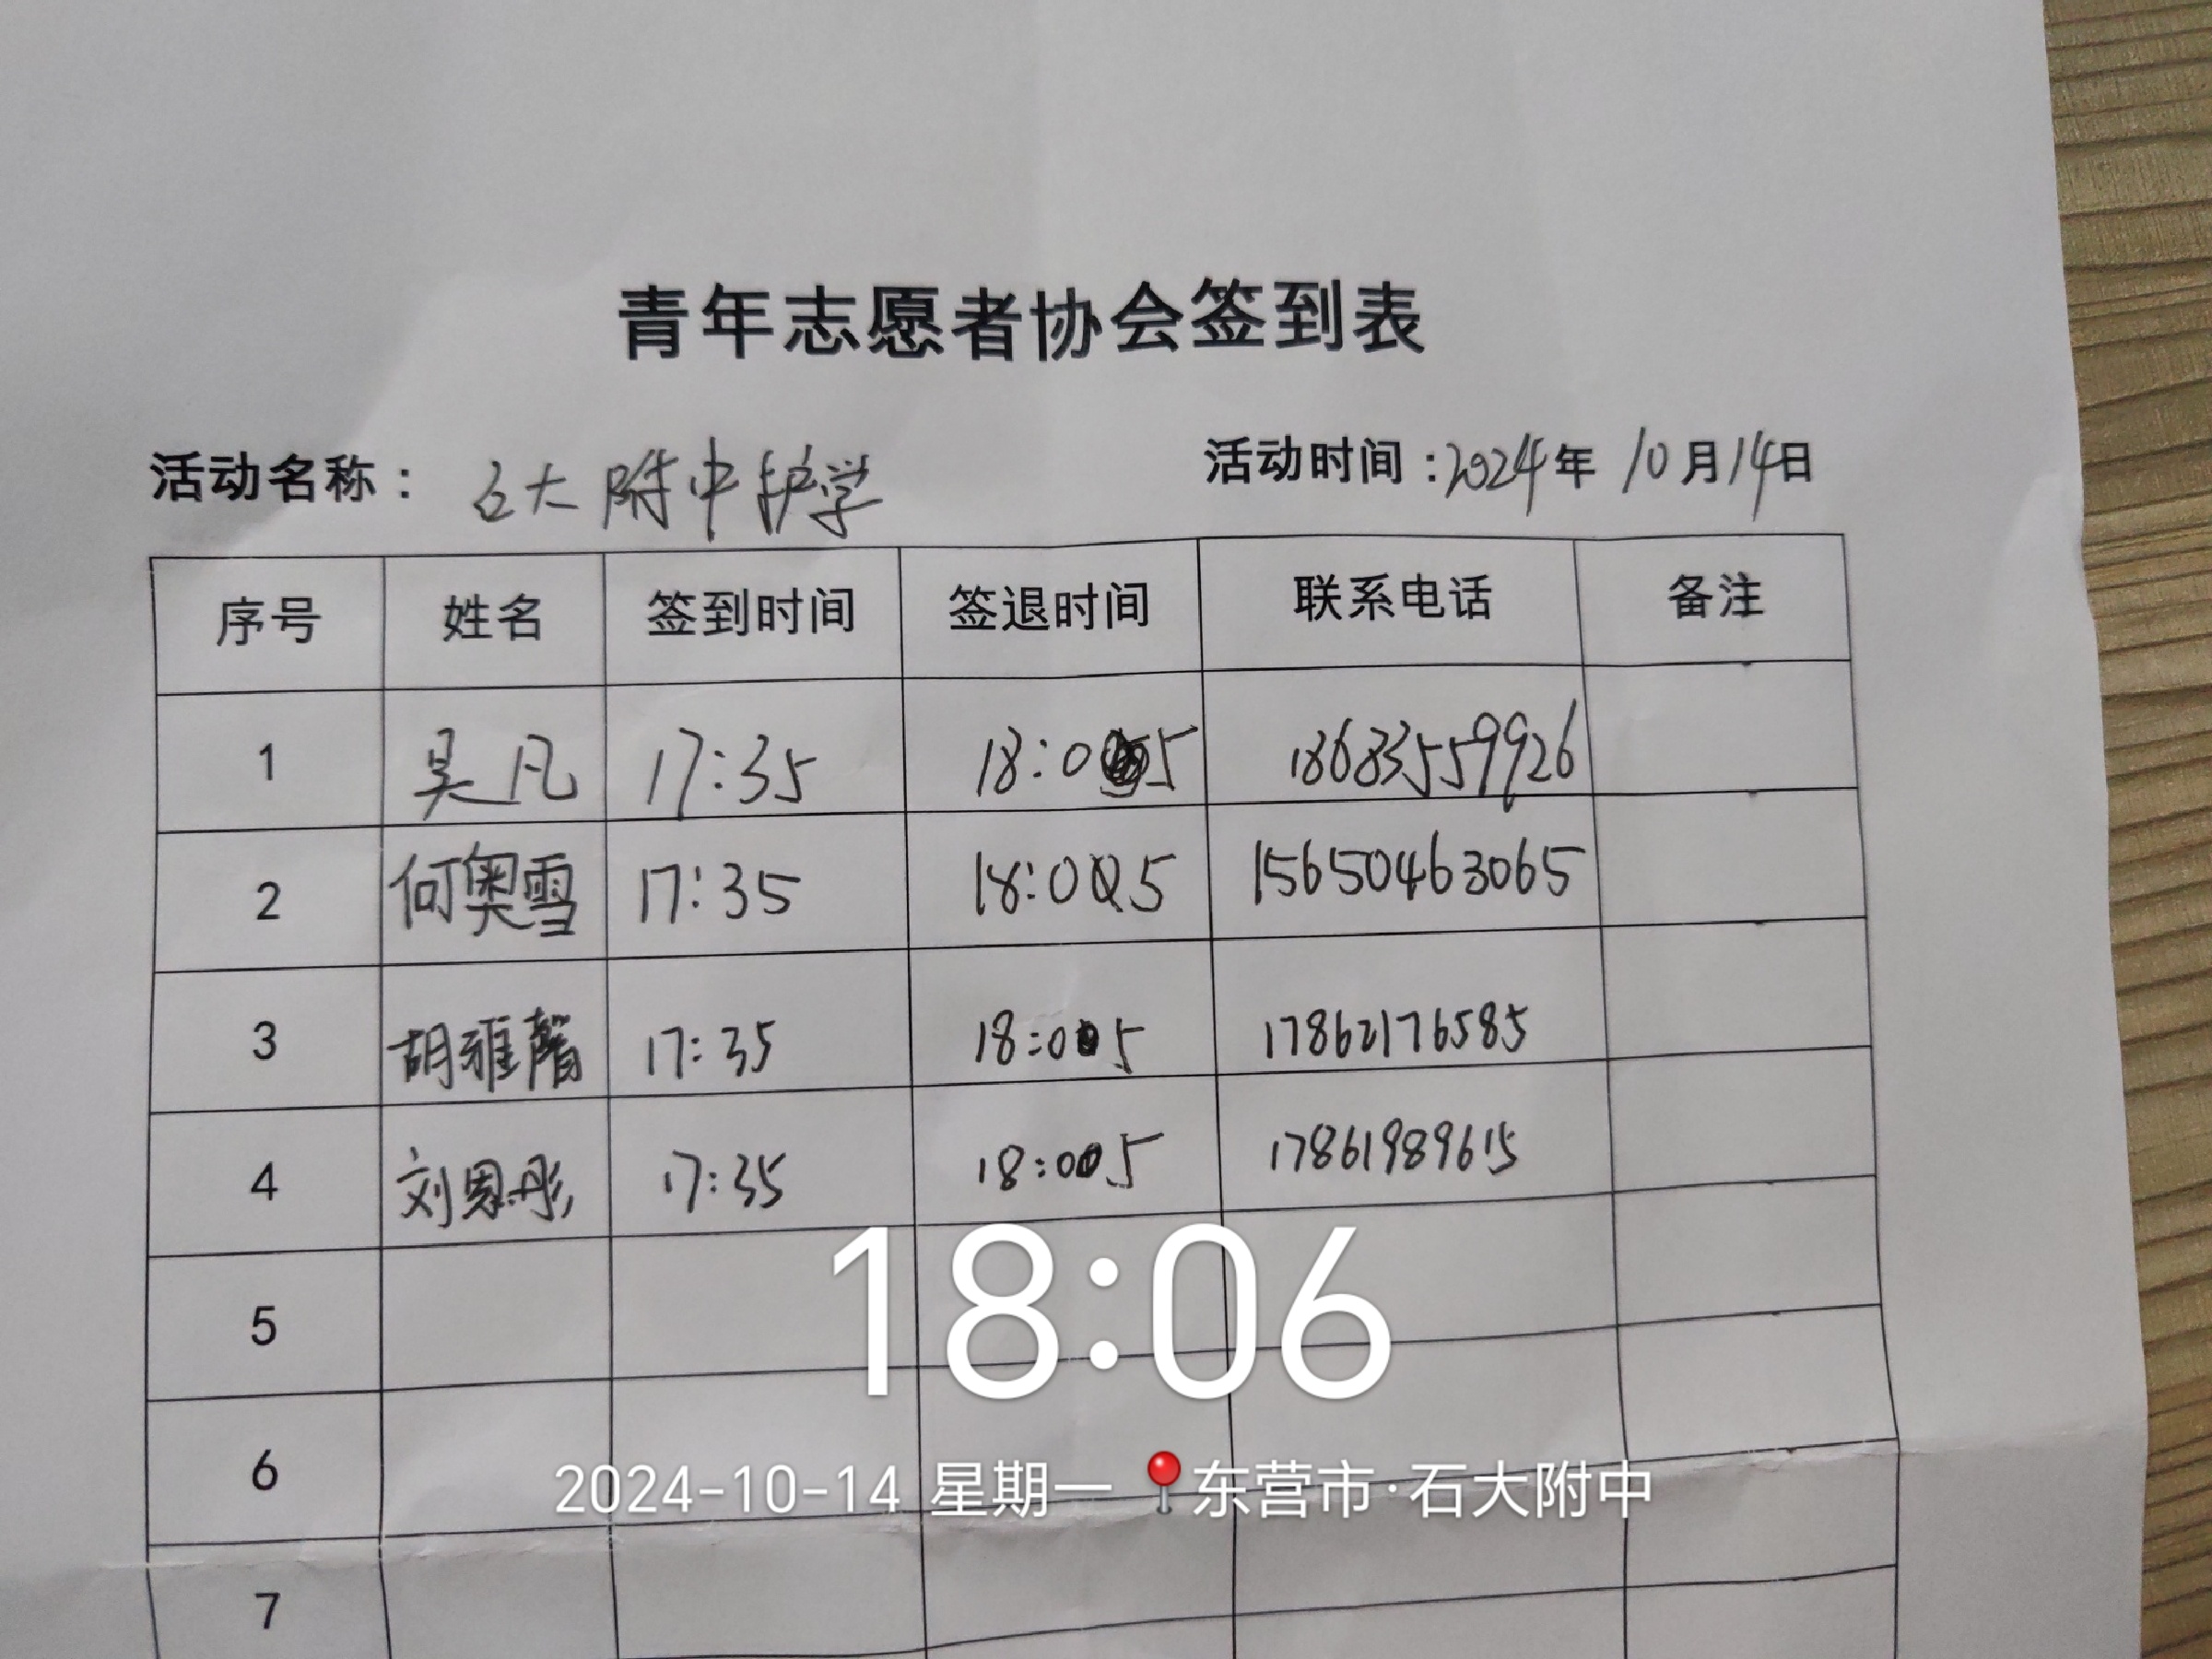 青年志愿者协会签到表
活动名称： 石大附中护学 活动时间：2024年 10月14日
序号 姓名 签到时间 签退时间 联系电话 备注
1 吴凡 17:35 18:05 18683559926
2 何奥雪 17:35 18:05 15650463065
3 胡雅馨 17:35 18:05 17862176585
4 刘恩彤 17:35 18:05 17861989615
18:06
5
6
2024-10-14 星期一 东营市·石大附中
7